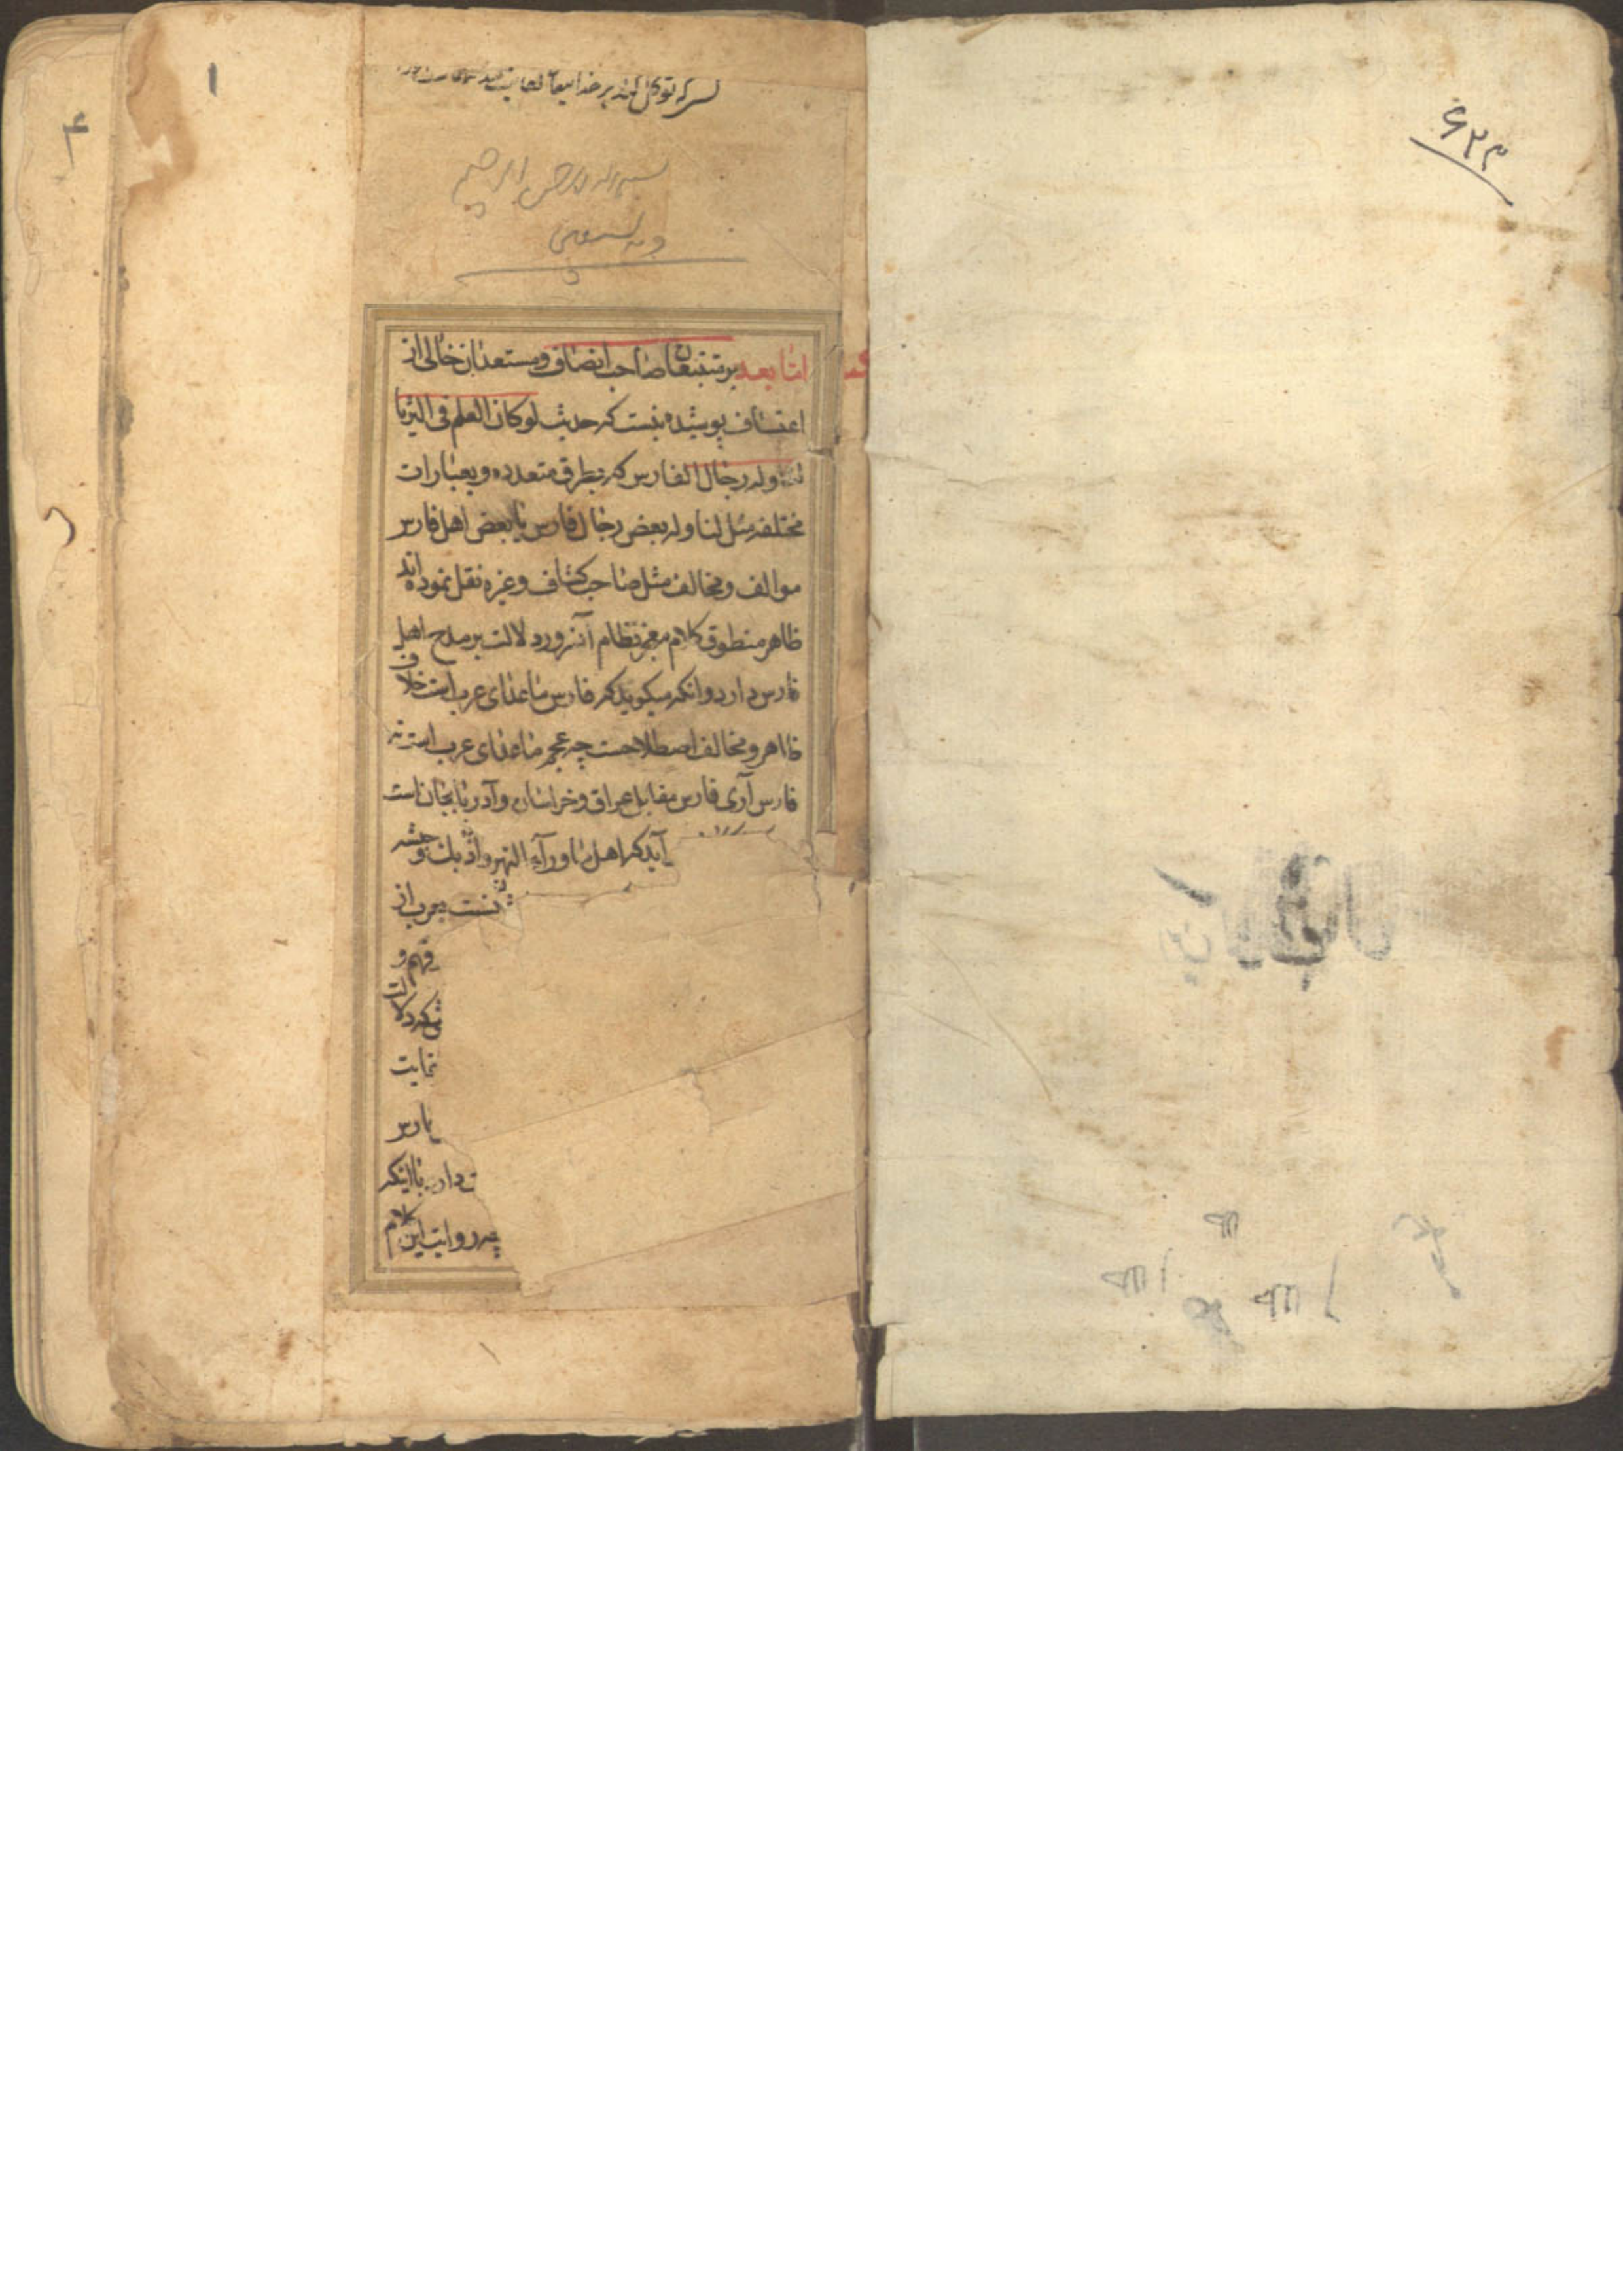 ۶۲۳
۱
بسم الله الرحمن الرحیم
و به نستعین
اما بعد بر متتبعان صاحب انصاف و مستعدان خالی از
اعتساف پوشیده نیست که حدیث لو کان العلم فی الثریا
وله رجال الفارس که بطرق متعدده و بعبارات
مختلفه مثل لناوله بعض رجال فارس یا بعض اهل فارس
موالف و مخالف مثل صاحب کشاف و غیره نقل نموده اند
ظاهر منطوق کلام معجز نظام آنسرور دلالت بر مدح اهل
فارس دارد و آنکه میگوید که فارس ماعدای عرب است خلاف
ظاهر و مخالف اصطلاحست چه عجم ماعدای عرب است نه
فارس آری فارس مقابل عراق و خراسان و آذربایجان است
آید که اهل ماورآء النهر و اذبك و حبشه
نسبت بعرب از
فهم و
که دلالت
نمایت
فارس
دارد با اینکه
روایت این کلام